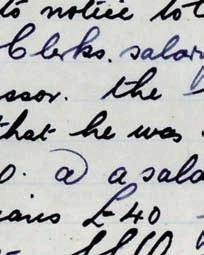 to notice
Clerks. salary
ssor. the
that he was
a) a sala
£40